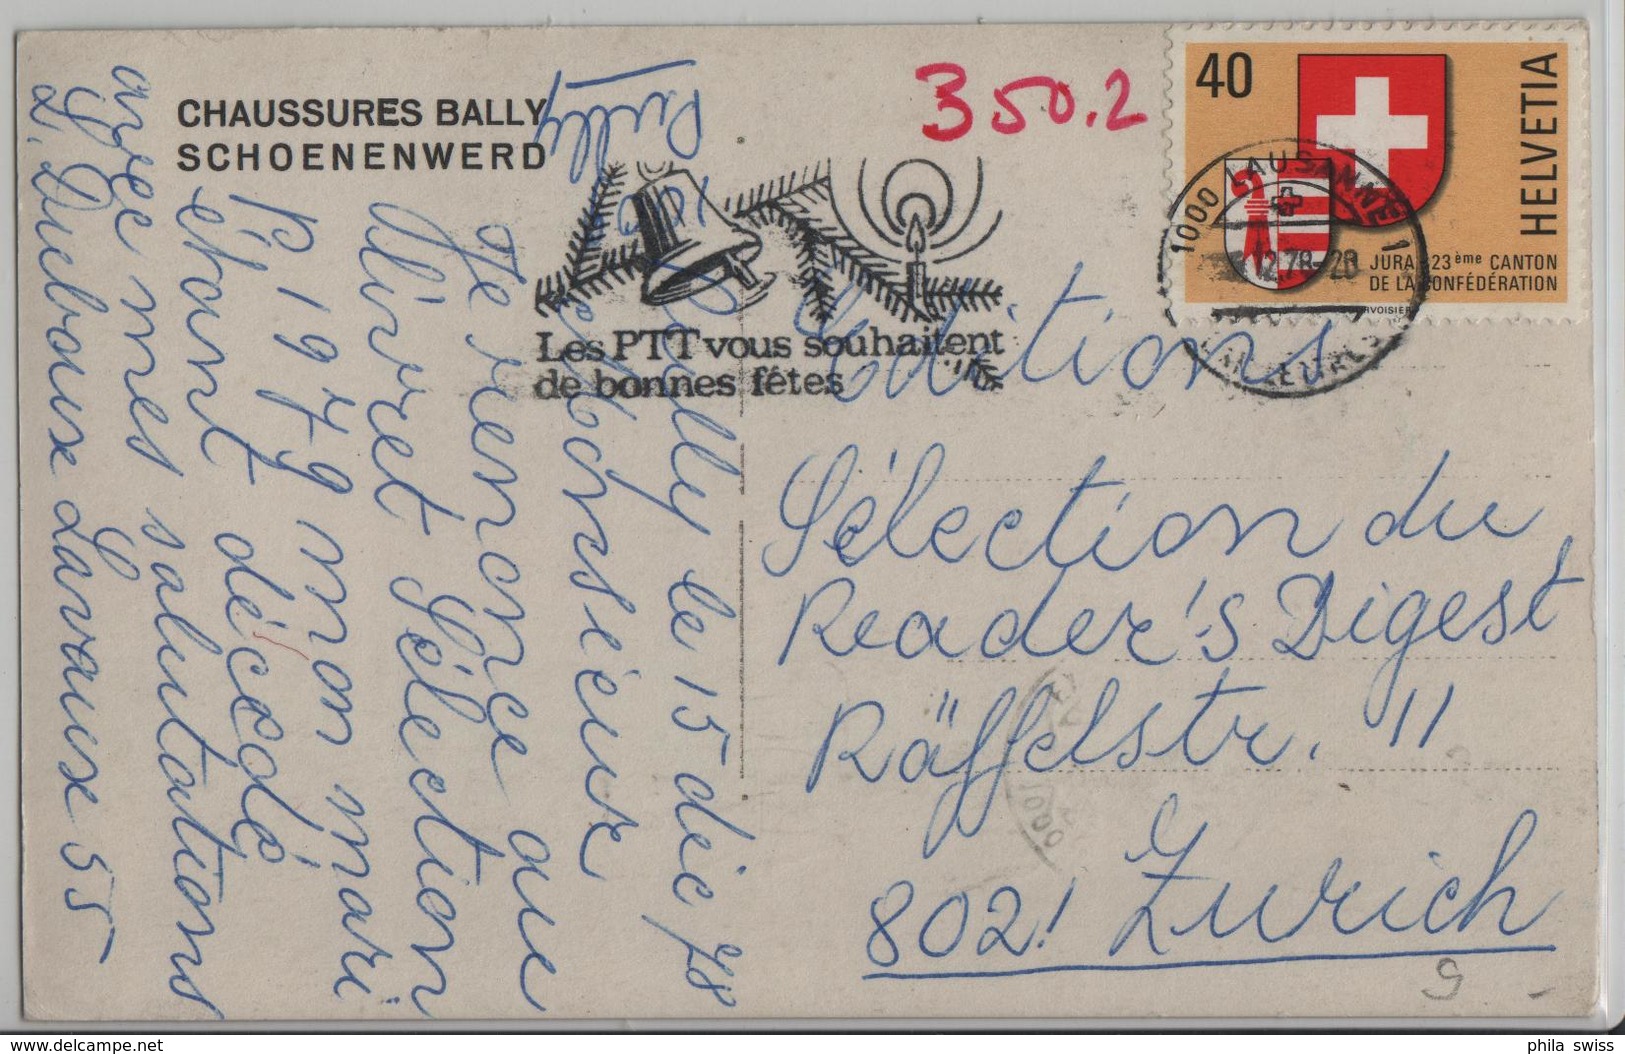 CHAUSSURES BALLY
SCHOENENWERD
350.2
40
HELVETIA
JURA 23ème CANTON
DE LA CONFÉDÉRATION
1000 LAUSANNE 1
12.78-20
Les PTT vous souhaitent
de bonnes fêtes
Pully le 15 déc 78
Messieurs
Je renonce que
livret Sélection
p. 1979 mon mari
étant décédé
avec mes salutations
L. Duboux Lavaux 55
1100 Pully
Editions
Sélection du
Reader's Digest
Räffelstr. 11
8021 Zurich
9
phila swiss
www.delcampe.net